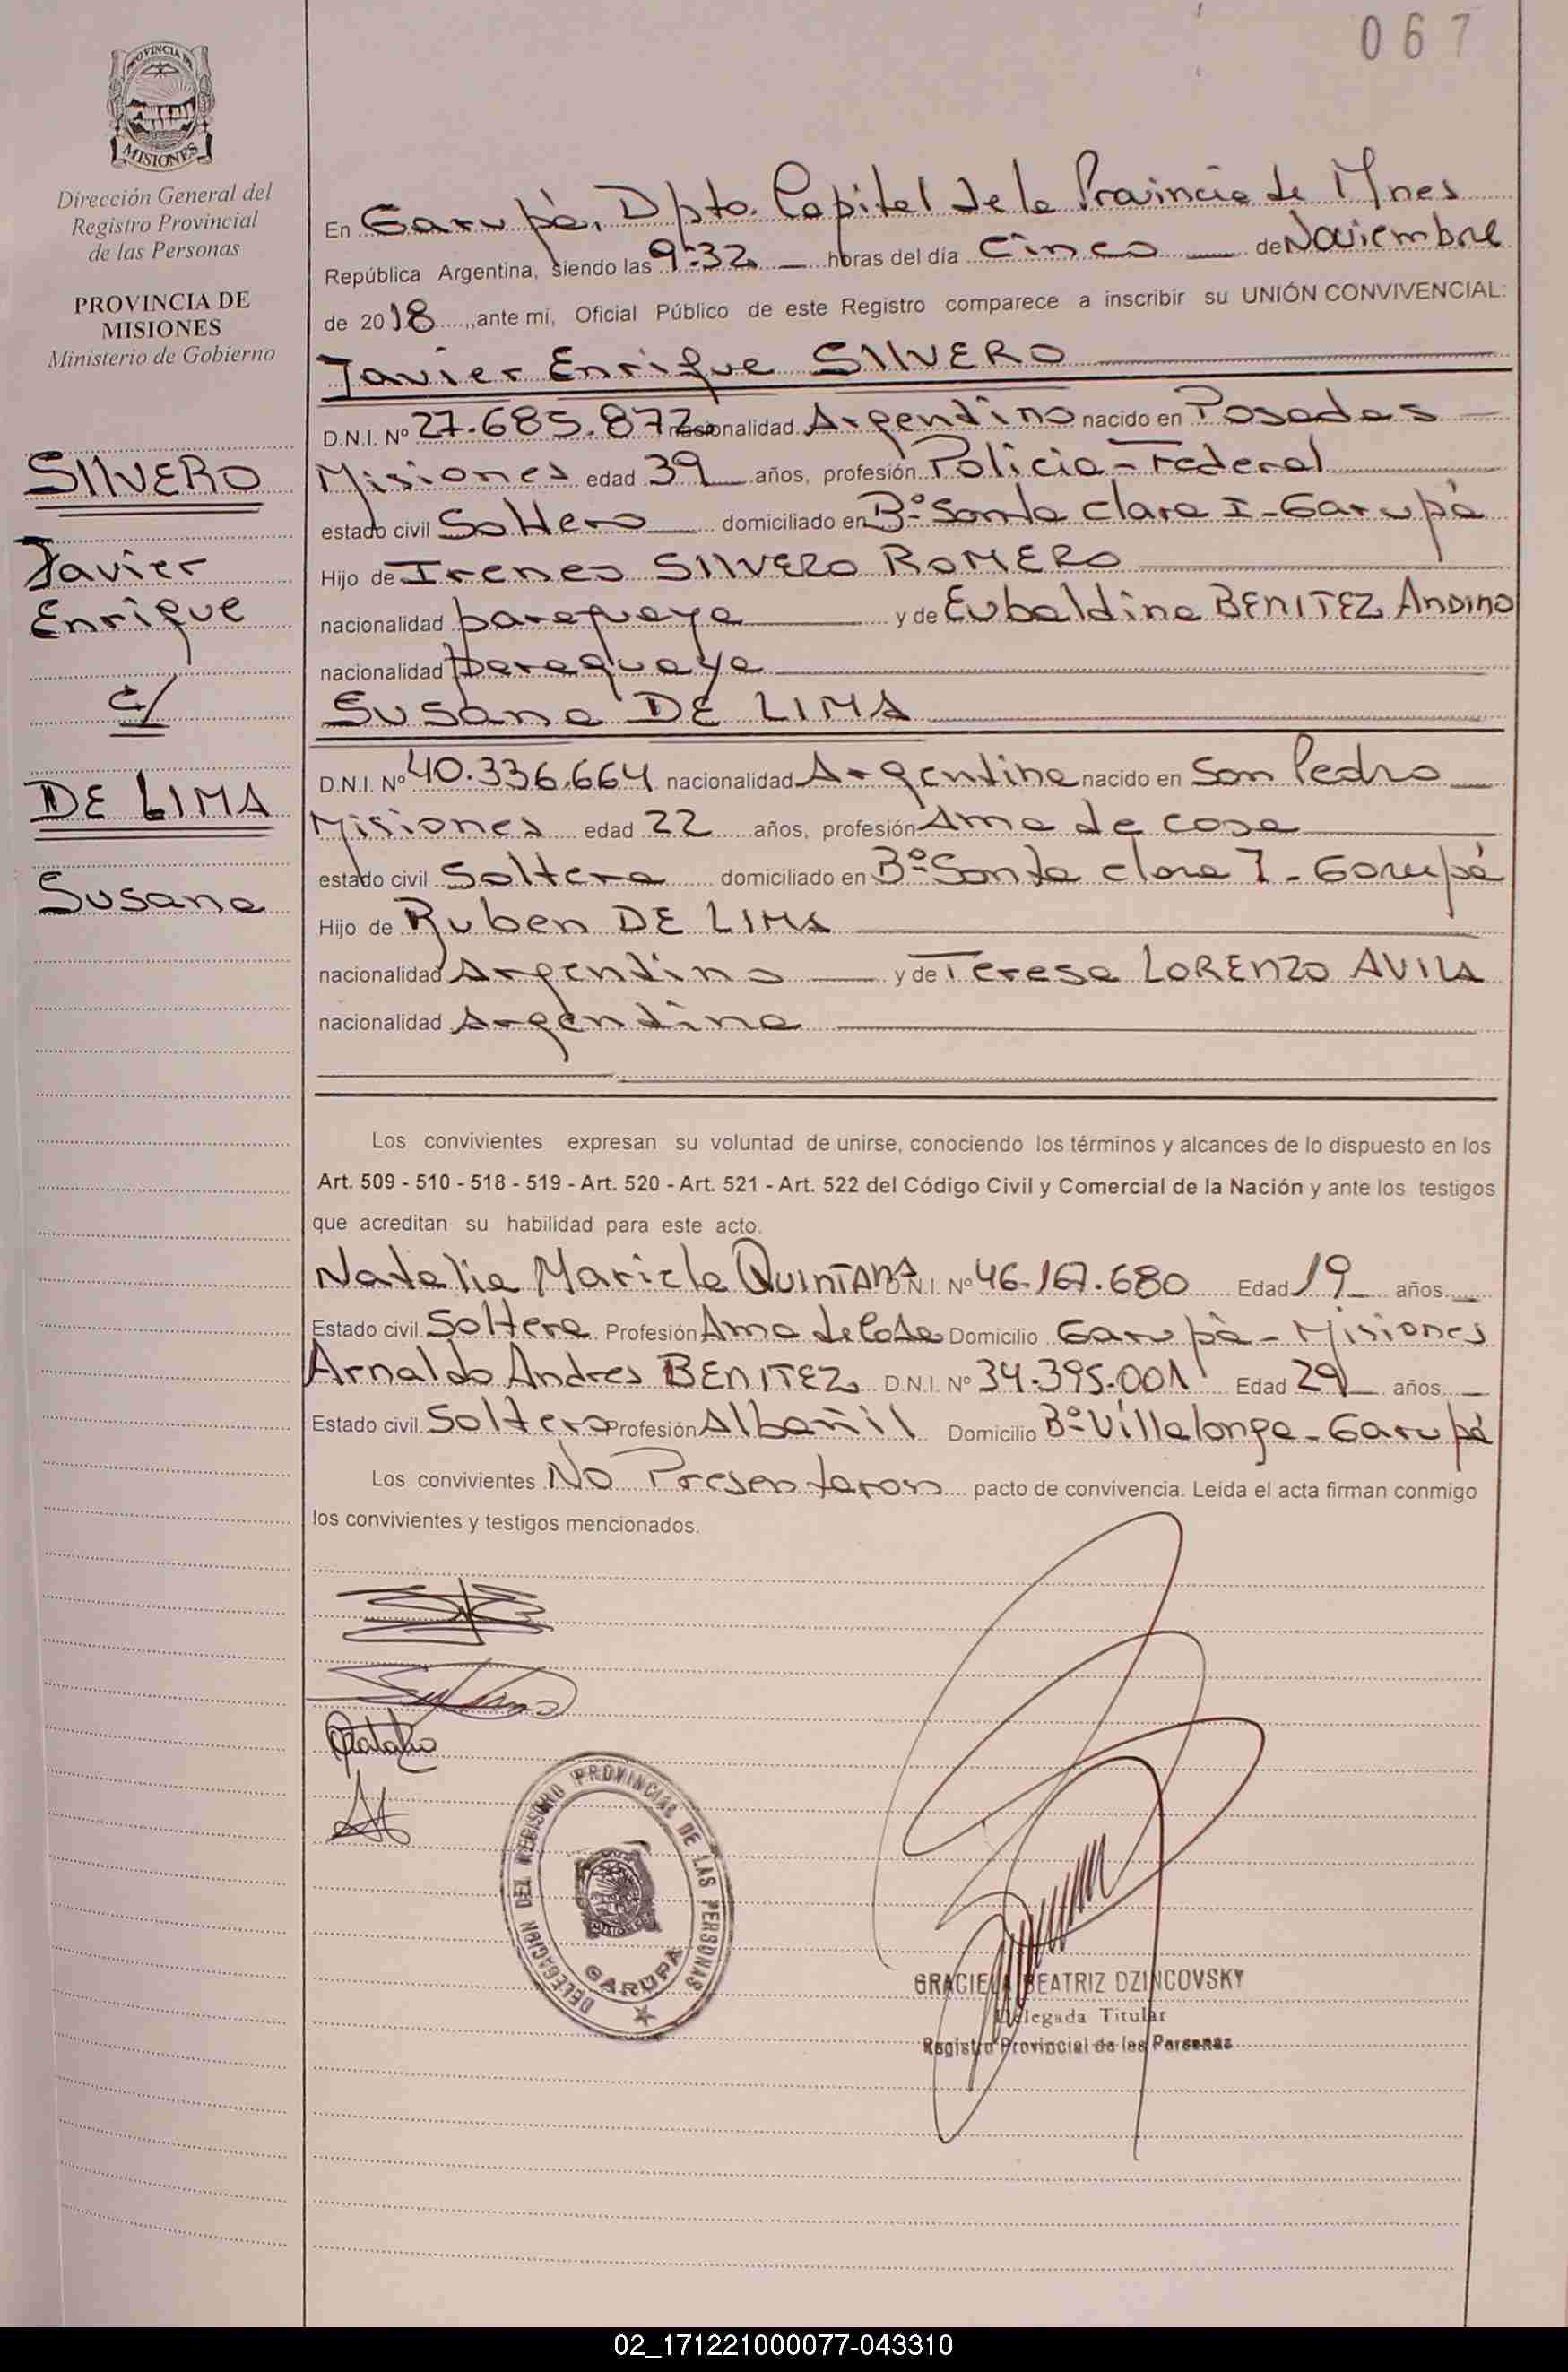 067
PROVINCIA DE
MISIONES
Dirección General del
Registro Provincial
de las Personas
PROVINCIA DE
MISIONES
Ministerio de Gobierno
SILVERO
Javier
Enrique
c/
DE LIMA
Susana
En Garupá, Dpto. Capital de la Provincia de Mnes
República Argentina, siendo las 9:32 horas del día Cinco de Noviembre
de 2018, ante mí, Oficial Público de este Registro comparece a inscribir su UNIÓN CONVIVENCIAL:
Javier Enrique SILVERO
D.N.I. Nº 27.685.872 nacionalidad Argentino nacido en Posadas
Misiones edad 39 años, profesión Policia-Federal
estado civil Soltero domiciliado en Bº Santa Clara I - Garupá
Hijo de Ireneo SILVERO ROMERO
nacionalidad paraguaya y de Eubaldina BENITEZ ANDINO
nacionalidad paraguaya
Susana DE LIMA
D.N.I. Nº 40.336.664 nacionalidad Argentina nacido en San Pedro
Misiones edad 22 años, profesión Ama de casa
estado civil Soltera domiciliado en Bº Santa clara I - Garupá
Hijo de Ruben DE LIMA
nacionalidad Argentino y de Teresa LORENZO AVILA
nacionalidad Argentina
Los convivientes expresan su voluntad de unirse, conociendo los términos y alcances de lo dispuesto en los
Art. 509 - 510 - 518 - 519 - Art. 520 - Art. 521 - Art. 522 del Código Civil y Comercial de la Nación y ante los testigos
que acreditan su habilidad para este acto.
Natalia Mariela QUINTANA D.N.I. Nº 46.167.680 Edad 19 años
Estado civil Soltera Profesión Ama de Casa Domicilio Garupá - Misiones
Arnaldo Andres BENITEZ D.N.I. Nº 34.395.001 Edad 29 años
Estado civil Soltero Profesión Albañil Domicilio Bº Villalonga - Garupá
Los convivientes No Presentaron pacto de convivencia. Leida el acta firman conmigo
los convivientes y testigos mencionados.
DELEGACION DEL REGISTRO PROVINCIAL DE LAS PERSONAS
MISIONES
GARUPA
GRACIELA BEATRIZ DZINCOVSKY
Delegada Titular
Registro Provincial de las Personas
02_171221000077-043310